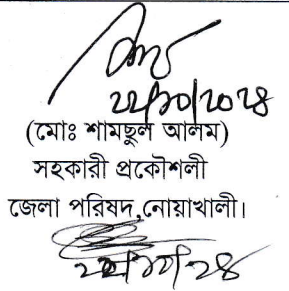 ২২/১০/২০২৪
(মোঃ শামছুল আলম)
সহকারী প্রকৌশলী
জেলা পরিষদ,নোয়াখালী।